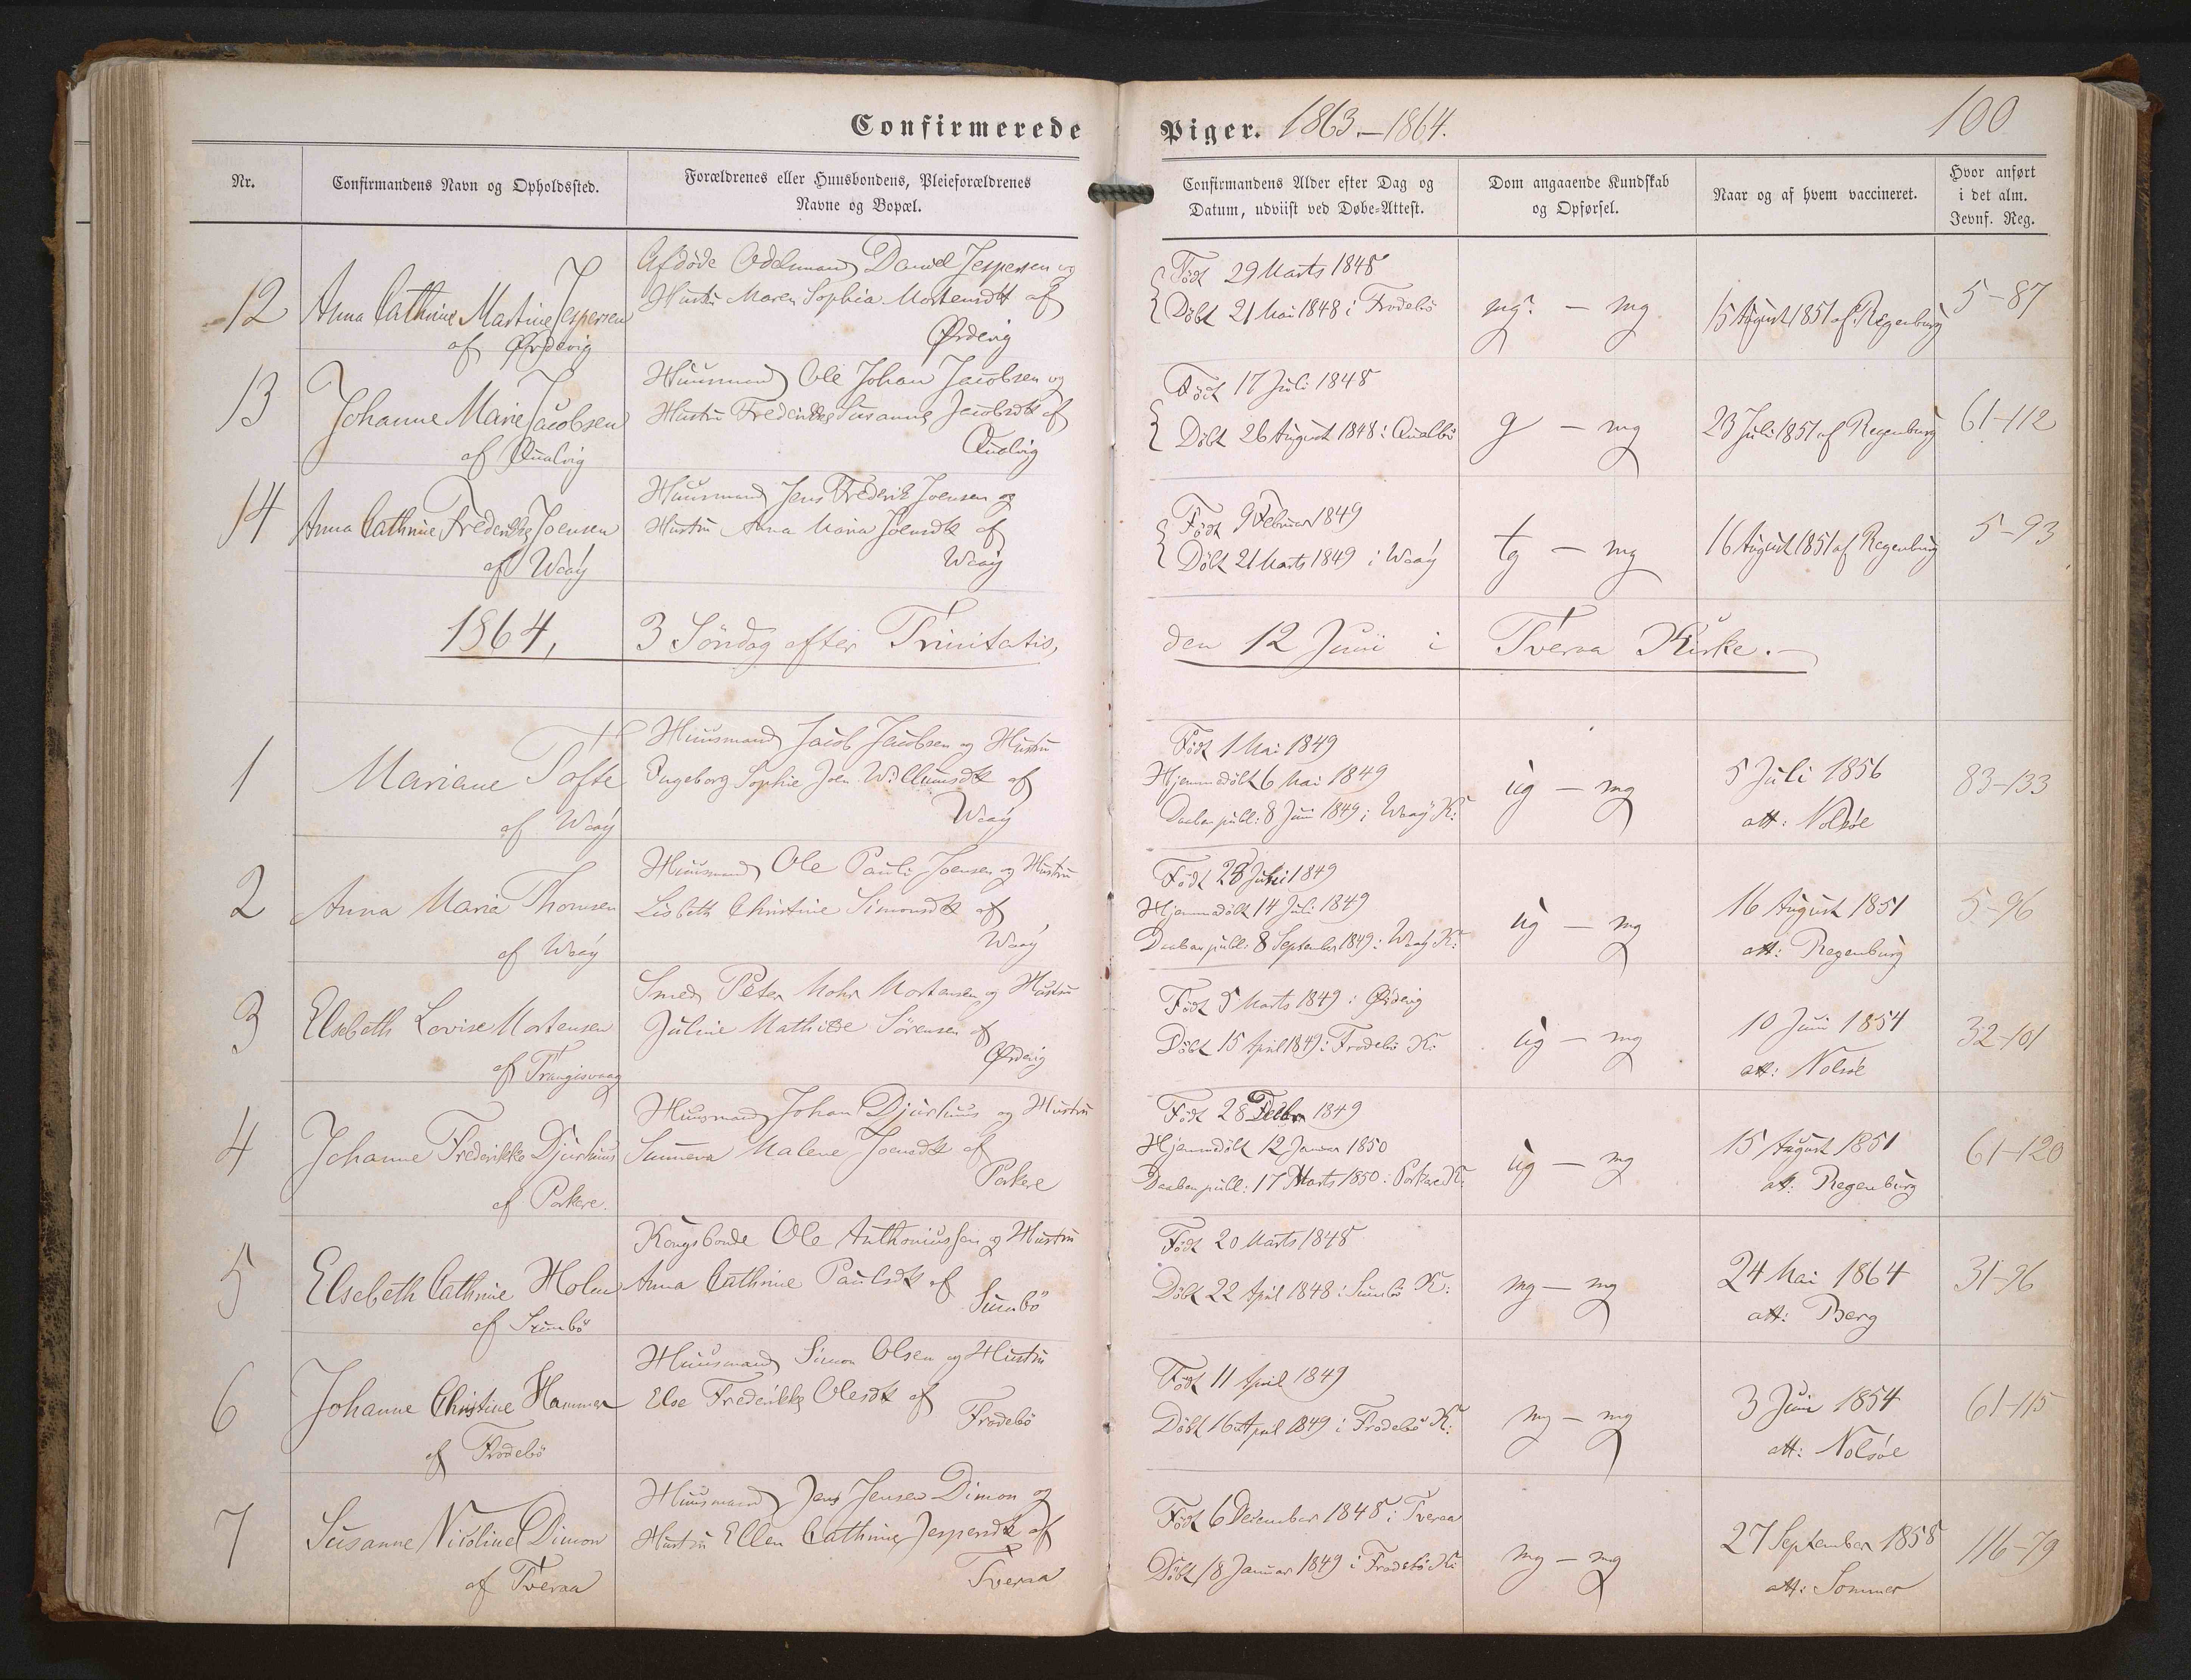 Confirmerede Piger. 1863–1864. 100
Nr.
Confirmandens Navn og Opholdssted.
Forældrenes eller Huusbondens, Pleieforældrenes
Navne og Bopæl.
Confirmandens Alder efter Dag og
Datum, udviist ved Døbe-Attest.
Dom angaaende Kundskab
og Opførsel.
Naar og af hvem vaccineret.
Hvor anført
i det alm.
Jevnf. Reg.
12
Anna Cathrine Martine Jespersen
af Ørdevig
Afdøde Odelsmand Daniel Jespersen og
Hustru Maren Sophia Mortensdt af
Ørdevig
Født 29 Marts 1848
Døbt 21 Mai 1848 i Frodebø
mg? – mg
15 August 1851 af Regenburg
5–87
13
Johanne Marie Jacobsen
af Qualvig
Huusmand Ole Johan Jacobsen og
Hustru Frederikke Susanne Jacobsdt af
Qualvig
Født 17 Juli 1848
Døbt 26 August 1848 i Qualbø
g – mg
23 Juli 1851 af Regenburg
61–112
14
Anna Cathrine Frederikke Joensen
af Waaÿ
Huusmand Jens Frederik Joensen og
Hustru Anna Maria Joensdt af
Waaÿ
Født 9 Februar 1849
Døbt 21 Marts 1849 i Waaÿ
tg – mg
16 August 1851 af Regenburg
5–93
1864, 3 Söndag efter Trinitatis, den 12 Juni i Tveraa Kirke.
1
Mariane Tofte
af Waaÿ
Huusmand Jacob Jacobsen og Hustru
Ingeborg Sophie Joen Willumsdt af
Waaÿ
Født 1 Mai 1849
Hjemmedøbt 6 Mai 1849
Daaben publ: 8 Juni 1849 i Waaÿ K:
ug – mg
5 Juli 1856
att: Nolsøe
83–133
2
Anna Maria Thomsen
af Waaÿ
Huusmand Ole Pauli Joensen og Hustru
Lisbeth Christine Simonsdt af
Waaÿ
Født 28 1849
Hjemmedøbt 14 Juli 1849
Daaben publ: 8 September 1849 i Waaÿ K:
ug – mg
16 August 1851
att: Regenburg
5–96
3
Elsebeth Lovise Mortensen
af Trangisvaag
Smed Peter Mohr Mortensen og Hustru
Juline Mathilde Sörensen af
Ørdevig
Født 5 Marts 1849 i Ørdevig
Døbt 15 April 1849 i Frodebø K:
ug – mg
10 Juni 1854
att: Nolsøe
32–101
4
Johanne Frederikke Djurhuus
af Porkere.
Huusmand Johan Djurhuus og Hustru
Sunneva Malene Joensdt af
Porkere
Født 28 1849
Hjemmedøbt 12 Januar 1850
Daaben publ: 17 Marts 1850 i Porkere K:
ug – mg
15 August 1851
att: Regenburg
61–120
5
Elsebeth Cathrine Holm
af Sumbö
Kongsbonde Ole Anthoniussen og Hustru
Anna Cathrine Paulsdt af
Sumbö
Født 20 Marts 1848
Døbt 22 April 1848 i Sumbö K:
mg – mg
24 Mai 1864
att: Berg
31–96
6
Johanne Christine Hammer
af Frodebö
Huusmand Simon Olsen og Hustru
Else Frederikke Olesdt af
Frodebö
Født 11 April 1849
Døbt 16 April 1849 i Frodebö K:
mg – mg
3 Juni 1854
att: Nolsöe
61–115
7
Susanne Nicoline Dimon
af Tveraa
Huusmand Jens Jensen Dimon og
Hustru Ellen Cathrine Jespersdt af
Tveraa
Født 6 December 1848 i Tveraa
Døbt 18 Januar 1849 i Frodebö K:
mg – mg
27 September 1858
att: Sommer
116–79